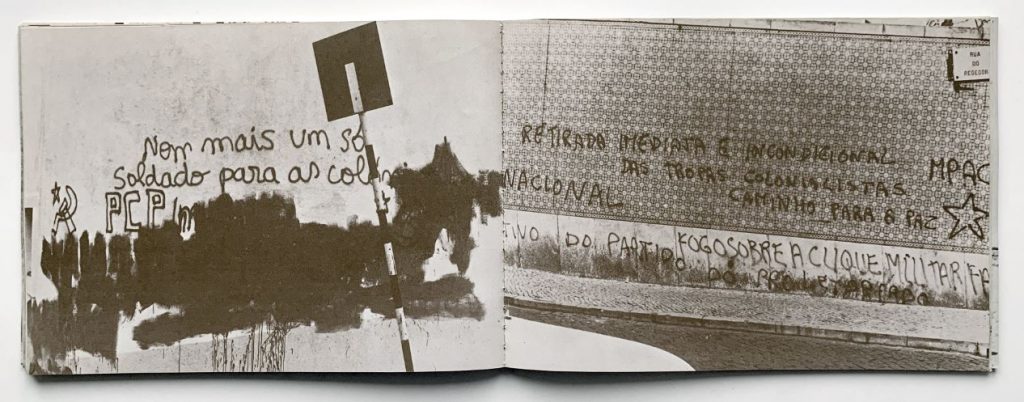 Nem mais um só
soldado para as coló
PCP/m
RUA
DO
REGEDOR
RETIRADA IMEDIATA E INCONDICIONAL
DAS TROPAS COLONIALISTAS
CAMINHO PARA A PAZ
MPAC
NACIONAL
DO PARTIDO
FOGO SOBRE A CLIQUE MILITAR FA
DO PROLETARIADO